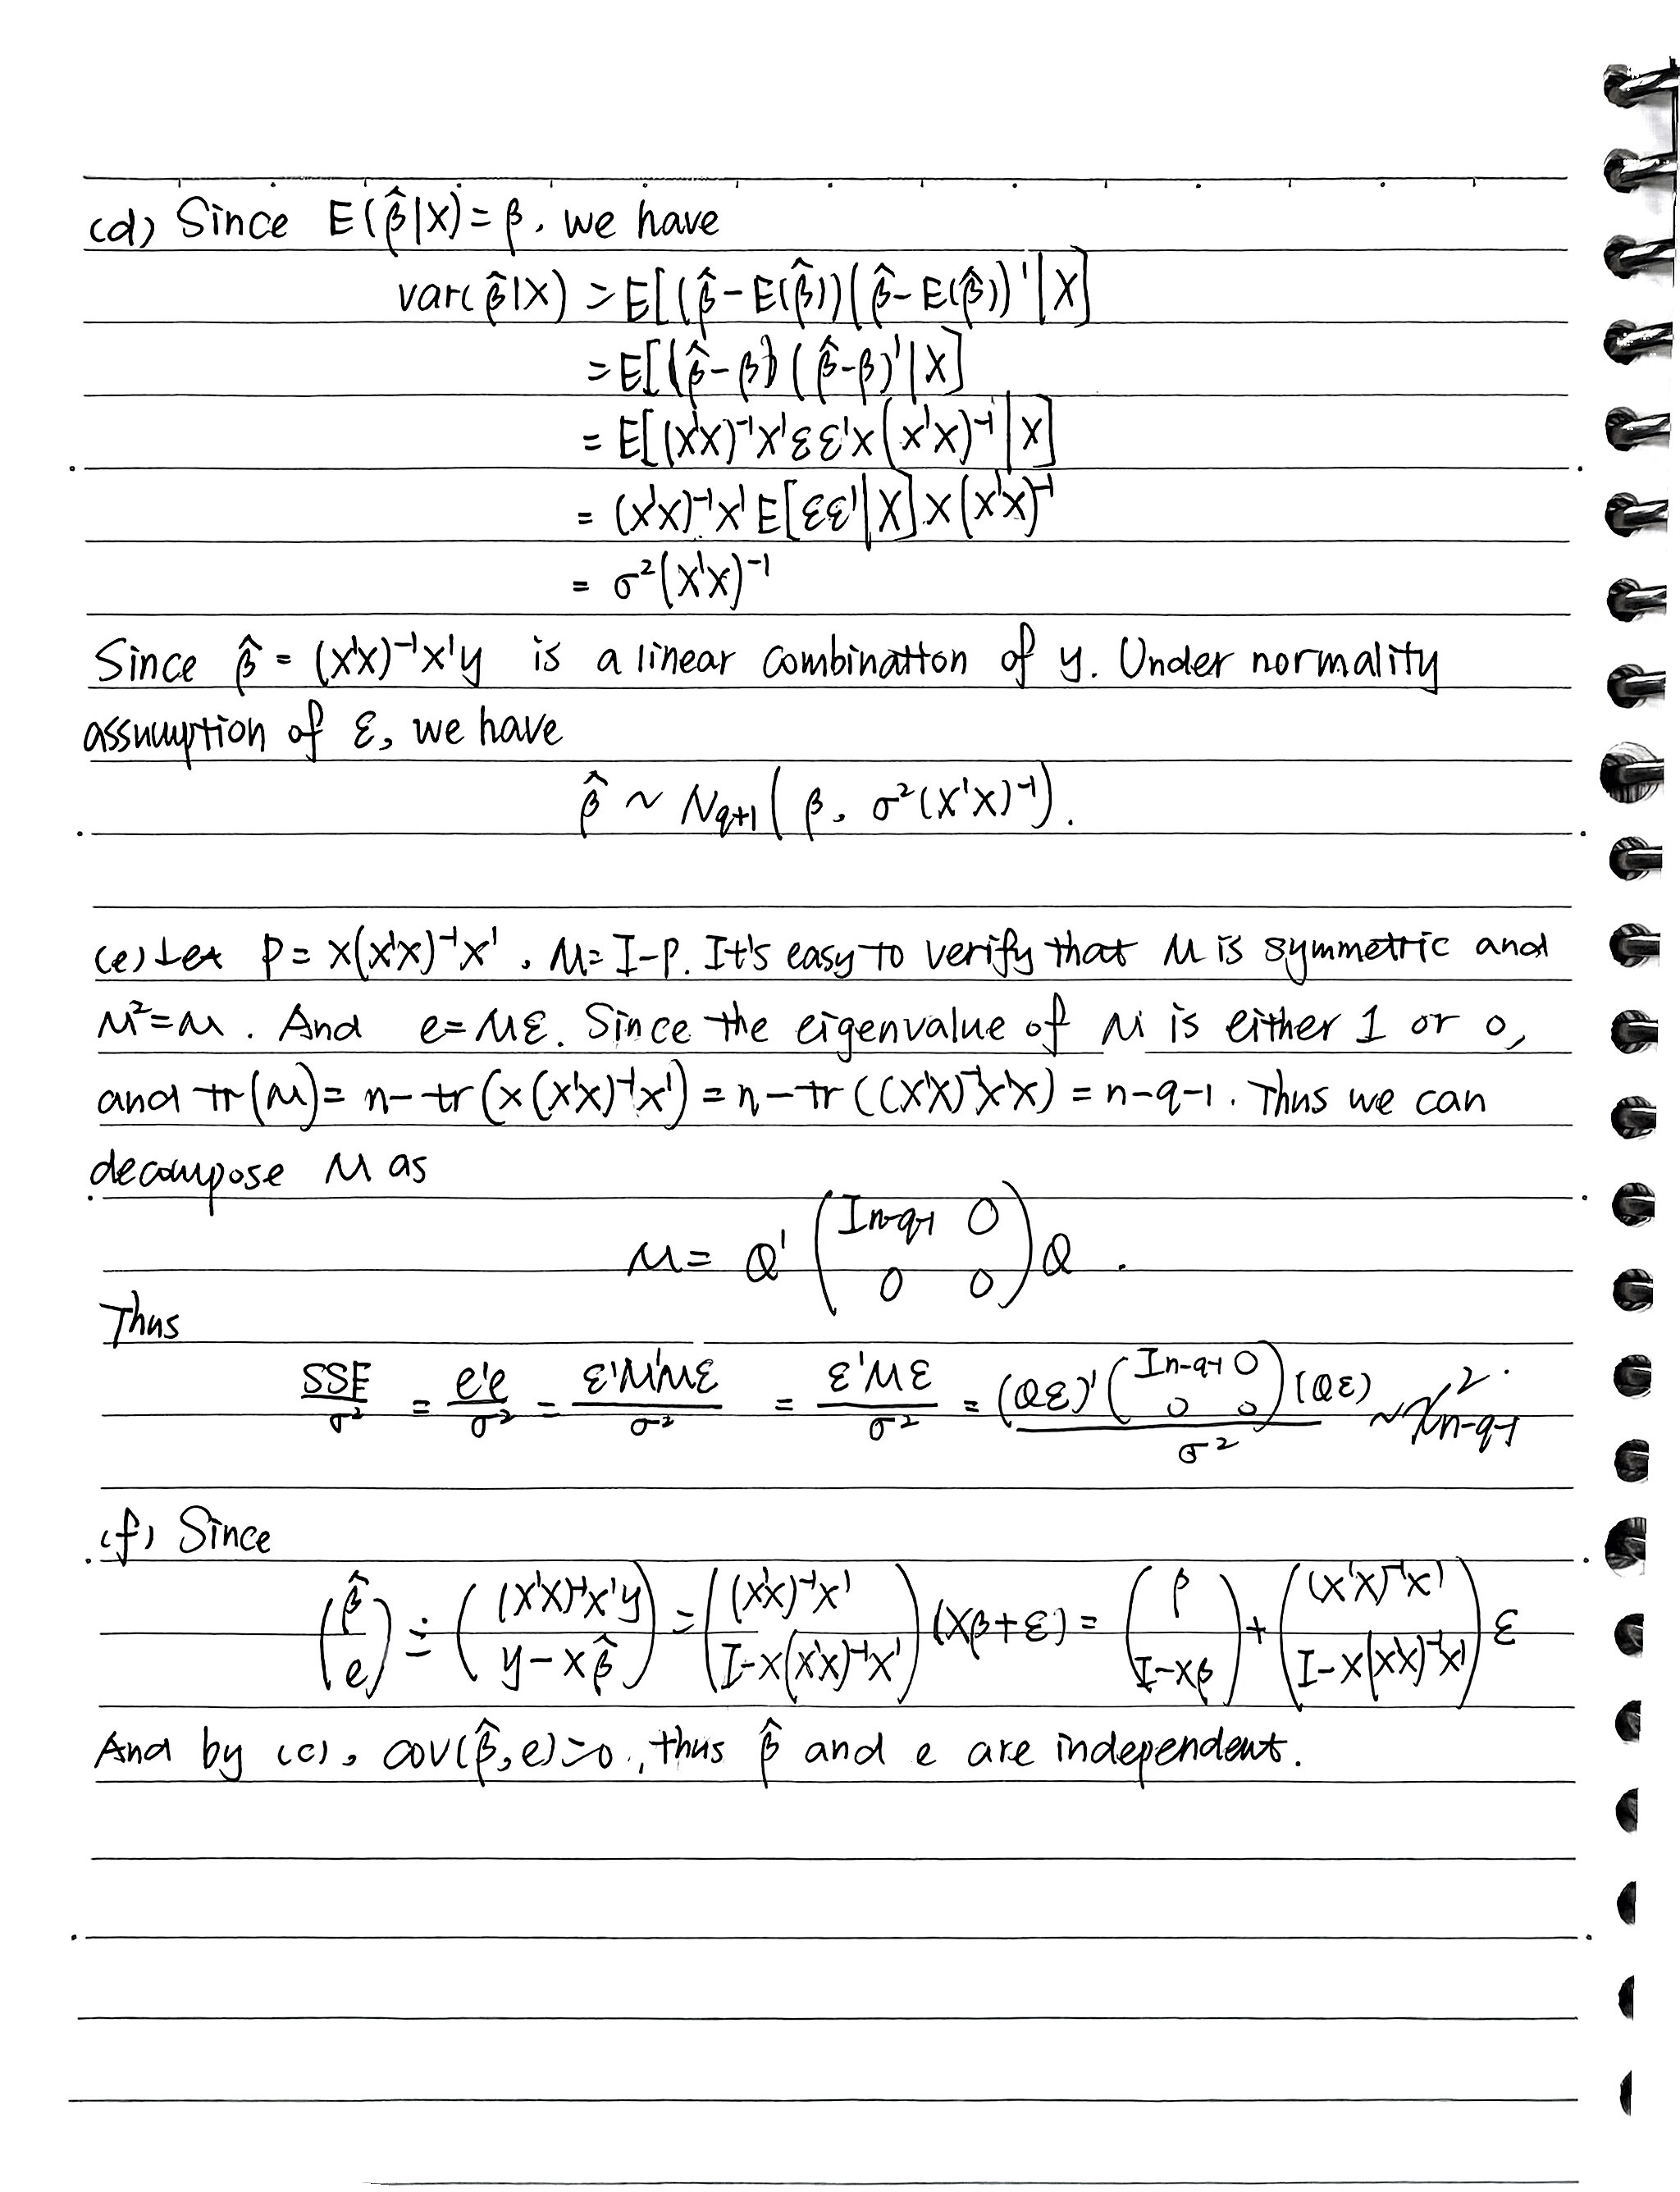 (d) Since E(β̂|X) = β, we have
var(β̂|X) = E[(β̂ - E(β̂))(β̂ - E(β̂))' | X]
= E[(β̂ - β)(β̂ - β)' | X]
= E[(X'X)⁻¹X'εε'X(X'X)⁻¹ | X]
= (X'X)⁻¹X'E[εε' | X]X(X'X)⁻¹
= σ²(X'X)⁻¹
Since β̂ = (X'X)⁻¹X'y is a linear combination of y. Under normality
assumption of ε, we have
β̂ ~ N_{q+1}(β, σ²(X'X)⁻¹).
(e) Let P = X(X'X)⁻¹X', M = I-P. It's easy to verify that M is symmetric and
M² = M. And e = Mε. Since the eigenvalue of M is either 1 or 0,
and tr(M) = n - tr(X(X'X)⁻¹X') = n - tr((X'X)⁻¹X'X) = n-q-1. Thus we can
decompose M as
M = Q' ( I_{n-q-1} 0 ; 0 0 ) Q.
Thus
SSE/σ² = e'e/σ² = ε'M'Mε/σ² = ε'Mε/σ² = (Qε)' ( I_{n-q-1} 0 ; 0 0 ) (Qε)/σ² ~ χ²_{n-q-1}.
(f) Since
( β̂ ; e ) = ( (X'X)⁻¹X'y ; y - Xβ̂ ) = ( (X'X)⁻¹X' ; I - X(X'X)⁻¹X' ) (Xβ + ε) = ( β ; I - Xβ ) + ( (X'X)⁻¹X' ; I - X(X'X)⁻¹X' ) ε
And by (c), cov(β̂, e) = 0, thus β̂ and e are independent.